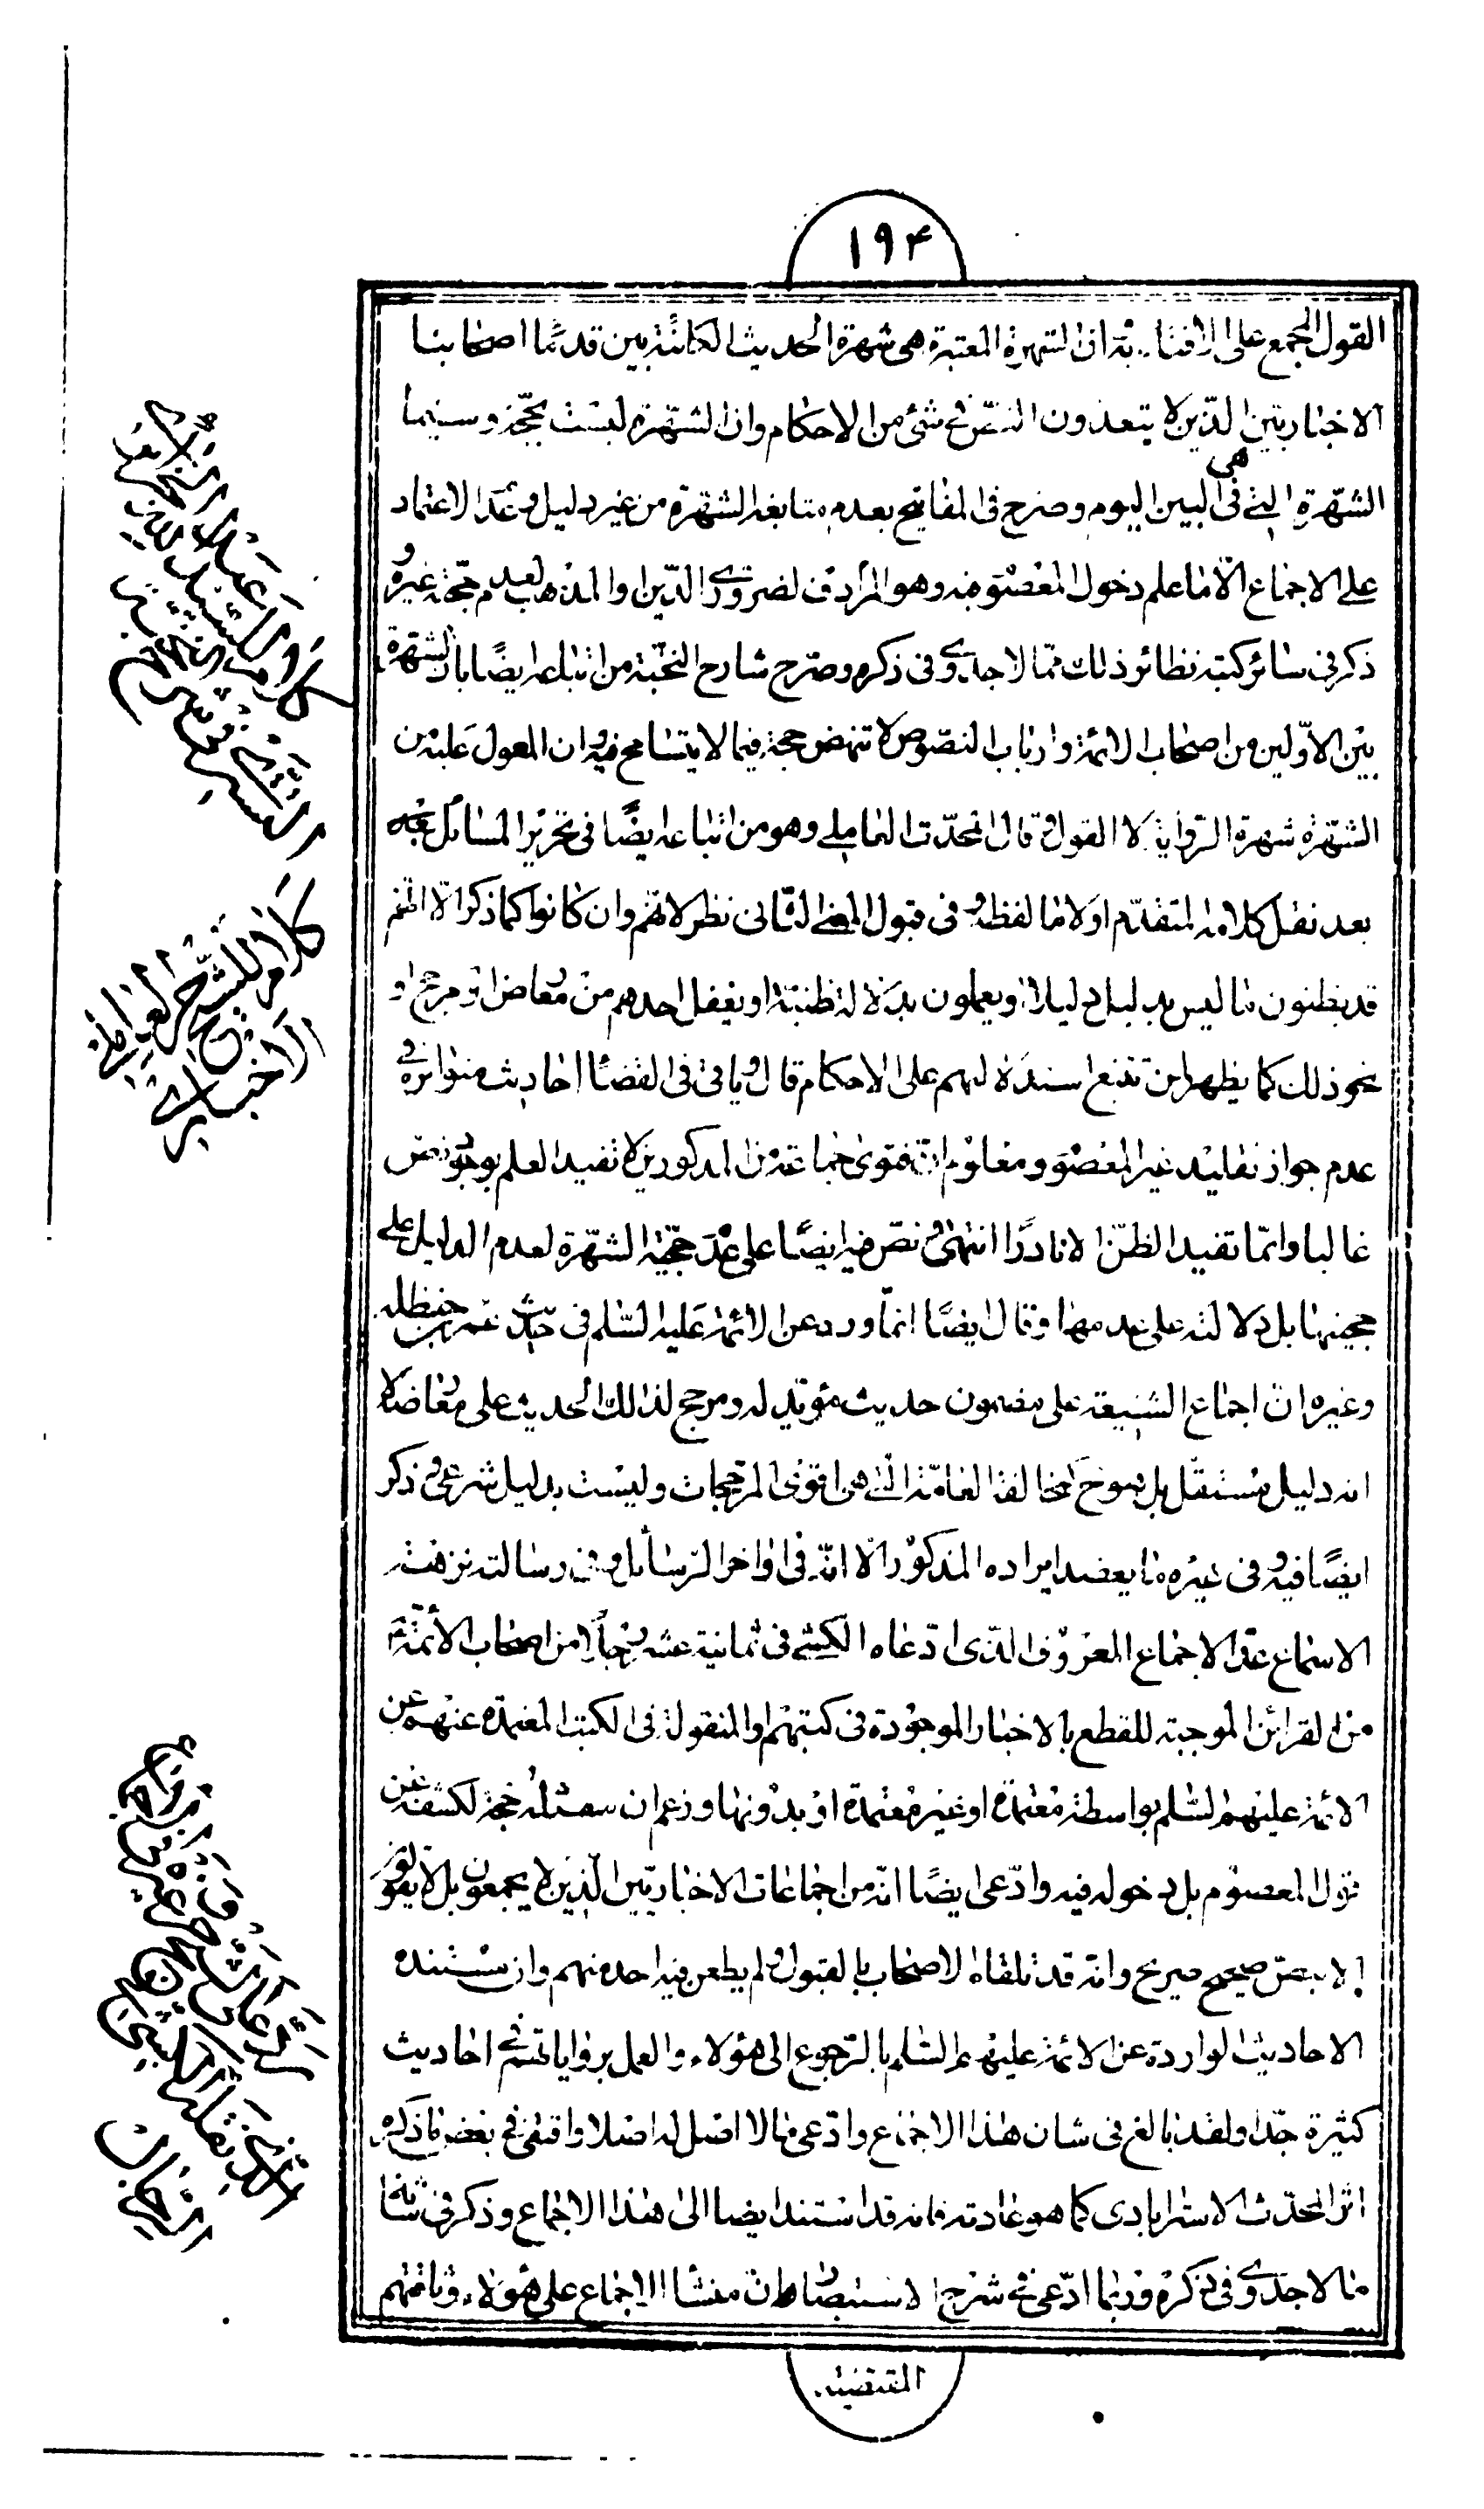 ١٩۴
القول المجمع على الافتاء به ان الشهرة المعتبرة هى شهرة الحديث الكائنة بين قدماء اصحابنا
الاخباريين الذين لا يتعدون النص فى شئ من الاحكام وان الشهرة ليست بحجة وسيما
الشهرة التى هى فى البين اليوم وصرح فى المفاتيح بعدم متابعة الشهرة من غير دليل وعدم الاعتماد
على الاجماع الا ما علم دخول المعصوم فيه وهو المرادف لضرورى الدين او المذهب لعدم حجية غيره و
ذكر فى سائر كتبه نظائر ذلك مما لا جدوى فى ذكره وصرح شارح النخبة من اتباعه ايضا بان الشهرة
بين الاولين من اصحاب الائمة وارباب النصوص لا تنهض حجة فيما لا يتسامح فيه وان المعول عليه من
الشهرة شهرة الرواية لا القول وقال المحدث العاملى وهو من اتباعه ايضا فى تحرير المسائل
بعد نقل كلامه المتقدم اولا ما لفظه وفى قبول المعنى الثانى نظر لانهم وان كانوا كما ذكر الا انهم
قد يظنون ما ليس بدليل دليلا او يعملون بدلالة ظنية او يغفل احدهم من معارض او مرجح او
نحو ذلك كما يظهر لمن تتبع استدلالهم على الاحكام قال ويأتى فى القضاء احاديث متواترة فى
عدم جواز تقليد غير المعصوم ومعلوم ان فتوى جماعة من المذكورين لا تفيد العلم بوجود نص
غالبا وانما تفيد الظن الا نادرا انتهى ونص فيه ايضا على عدم حجية الشهرة لعدم الدليل على
حجيتها بل دلالته على عدمها وقال ايضا انما ورد عن الائمة عليهم السلم فى حديث عمر بن حنظله
وغيره ان اجماع الشيعة على مضمون حديث مؤيد له ومرجح لذلك الحديث على معارضه لا
انه دليل مستقل بل هو نحو مخالفة العامة التى هى اقوى المرجحات وليست بدليل شرعى وذكر
ايضا فيه وفى غيره ما يعضد ايراده المذكور الا انه فى اواخر الرسائل وفى رسالته نزهت
الاسماع عد الاجماع المعروف الذى ادعاه الكشى فى ثمانية عشر رجلا من اصحاب الائمة ع
من القرائن الموجبة للقطع بالاخبار الموجودة فى كتبهم او المنقولة فى الكتب المعتمدة عنهم عن
الائمة عليهم السلم بواسطة معتمدة او غير معتمدة او بدونها وزعم ان مثله حجة لكشفه عن
قول المعصوم بل دخوله فيه وادعى ايضا انه من اجماعات الاخباريين الذين لا يجمعون بل لا يقولون
الا بنص صحيح صريح وانه قد تلقاه الاصحاب بالقبول ولم يطعن فيه احد منهم وان مستنده
الاحاديث الواردة عن الائمة عليهم السلم بالرجوع الى هؤلاء والعمل برواياتهم فى احاديث
كثيرة جدا ولقد بالغ فى شان هذا الاجماع وادعى ما لا اصل له اصلا واقتفى فى بعض ما ذكره
اثر المحدث الاسترابادى كما هو عادته فانه قد استند ايضا الى هذا الاجماع وذكر فى شانه
ما لا جدوى فى ذكره وربما ادعى فى شرح الاستبصار ان منشا الاجماع على هؤلاء وثاقتهم
المقتضية
كلام للشيخ الحر العاملى
الاخبارى